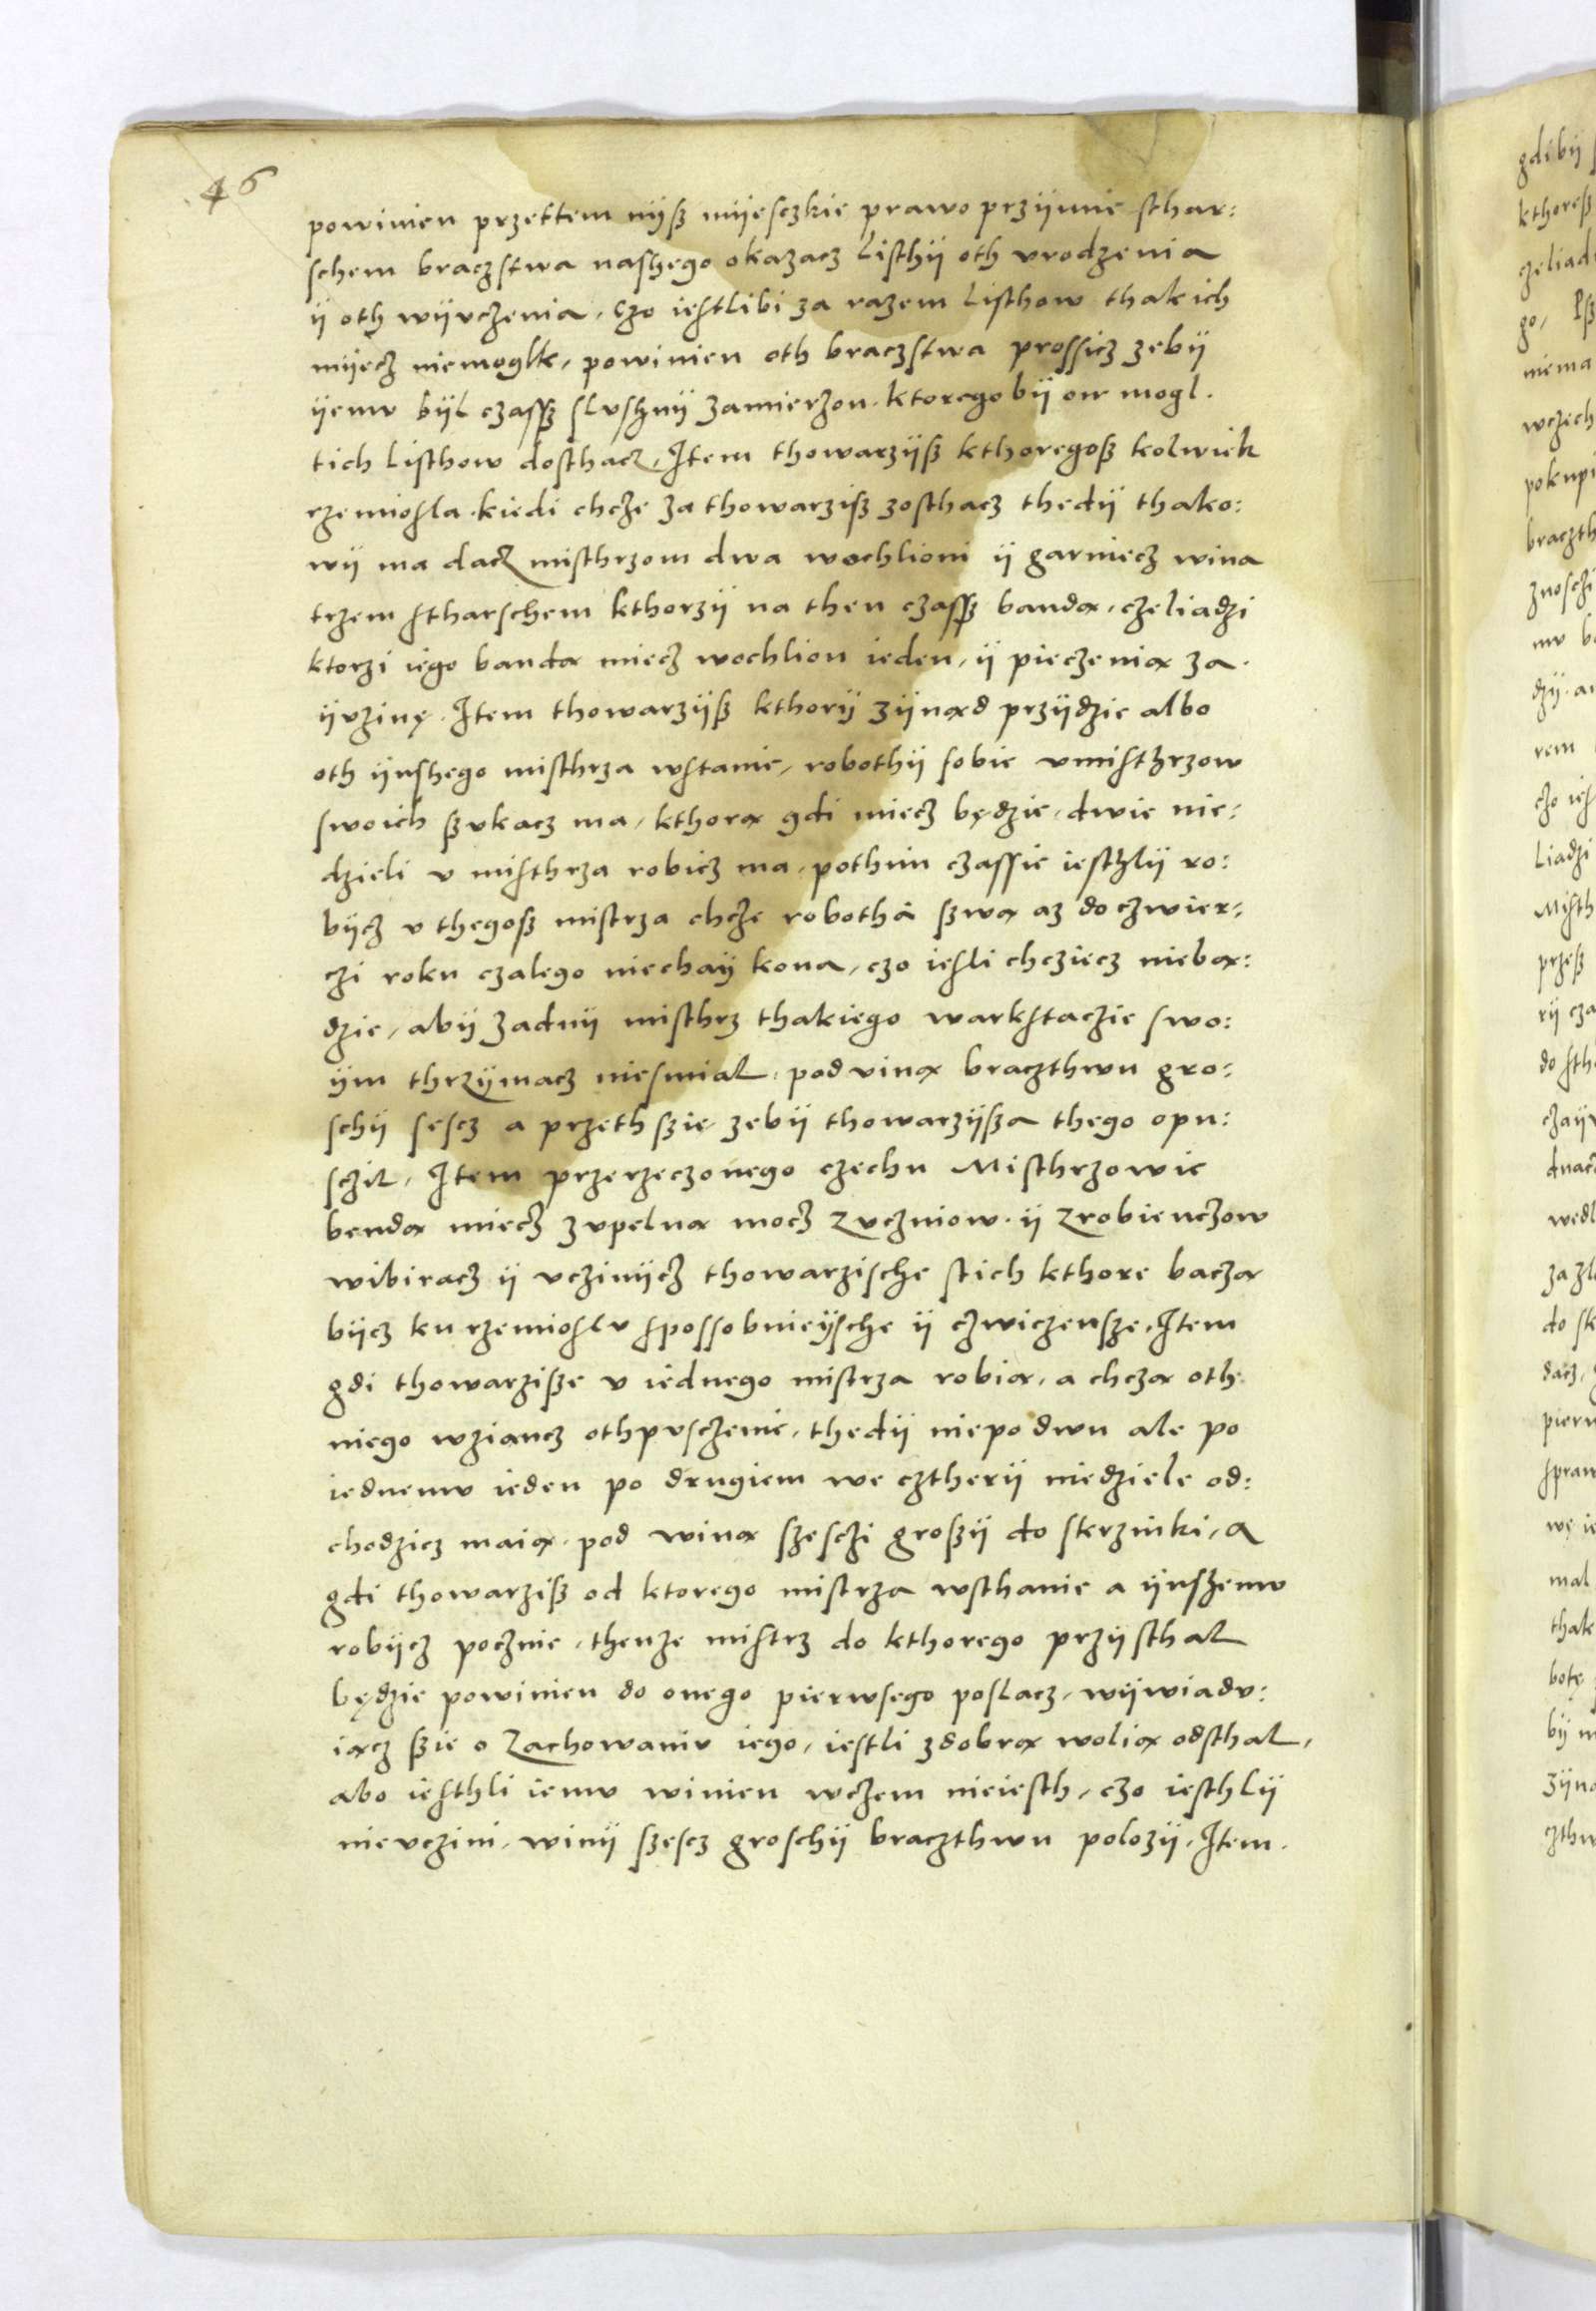 46
powinien przettem nÿß mÿesczkie prawo przÿmie sthar:
schem braczstwa nashego okazacz Listhÿ oth vrodzenia
ÿ oth wÿvczenia, czo iestlibi za razem Listhow thakich
mÿecz niemoglk, powinien oth braczstwa prossicz zebÿ
ÿemv bÿl czassz slvshnÿ zamierzon. ktoregobÿ on mogl.
tich Listhow dosthacz, Item thowarzÿß kthoregoß kolwiek
rzemiosla. kiedi chcze za thowarziß zosthacz thedÿ thako:
wÿ ma dacz misthrzom dwa wochlioni ÿ garniecz wina
trzem stharschem kthorzÿ na then czassz banda, czeliadzi
ktorzi iego banda miecz wochlion ieden, ÿ pieczenia za.
ÿvzinę. Item thowarzÿß kthorÿ zÿnąd przÿdzie albo
oth ÿnshego misthrza wstanie, robothÿ sobie vmistzrzow
swoich ßvkacz ma, kthora gdi miecz będzie, dwie nie:
dzieli v misthrza robicz ma, pothim czassie ieschlÿ ro:
bÿcz v thegoß mistrza chcze robotha ßwa az do czwier:
czi roku czalego niechaÿ kona, czo iesli chcziecz nieba:
dzie, abÿ zadnÿ misthrz thakiego warkstaczie swo:
ÿm thrzÿmacz niesmial, pod vina braczthwu gro:
schÿ sescz a przeth ßie zebÿ thowarzÿßa thego opu:
sczil, Item przerzeczonego czechu Misthrzowie
benda miecz zvpelna mocz zvczniow. ÿ zrobienczow
wibiracz ÿ vczinÿcz thowarzische stich kthore bacza
bÿcz ku rzemioslv spossobnieÿsche ÿ czwiczensze, Item
gdi thowarziße v iednego mistrza robia, a chcza oth
niego wziancz othpvsczenie, thedÿ niepo dwu ale po
iednemv ieden po drugiem we cztherÿ niedziele od:
chodzicz maia. pod wina szesczi großÿ do skrzinki, a
gdi thowarziß od ktorego mistrza wsthanie a ÿnszemv
robÿcz pocznie, thenze mistrz do kthorego przÿsthal
będzie powinien do onego pierwsego poslacz, wÿwiadv:
iacz ßie o zachowaniv iego, iestli zdobra wolia odsthal,
abo iesthli iemv winien wczem nieiesth, czo iesthlÿ
nievczini, winÿ szescz groschÿ braczthwu polozÿ, Item.